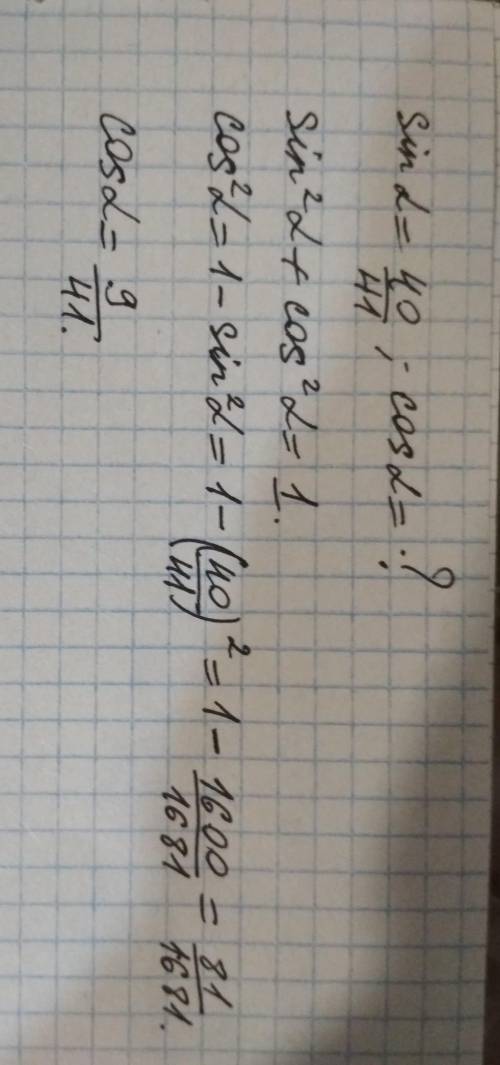 sin α = 40/41 ; cos α = ?
sin²α + cos²α = 1.
cos²α = 1 - sin²α = 1 - (40/41)² = 1 - 1600/1681 = 81/1681.
cos α = 9/41.